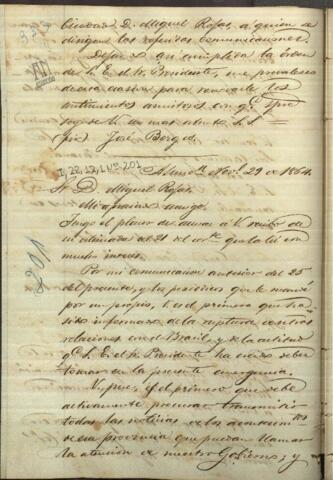 Ciudad D. Miguel Rojas, a quien se
dirigen las referidas comunicaciones
Dejando asi cumplida la orden
de S. E. el Sr. Presidente, me
de esta ocasion para renovarle los
sentimientos amistosos con qe.
de V. mui atento S. S.
(fir) José Berges
I-22,12,1 Nº 201
Asuncn. Novbe. 29 de 1864.
Sr. D. Miguel Rojas
Mi apreciado amigo.
Tengo el placer de
estimada del 21 del corte. que la lei con
mucho interes.
Por mi comunicacion anterior del 25
del presente, y los periodicos que le mandé
por un propio, V. es el primero que ha
sido informado de la ruptura de ntras
relaciones con el Brasil, y de la actitud
qe. S. E. el Sr. Presidente ha creido deber
tomar en la presente emergencia.
V. pues, es el primero que debe
activamente procurar transmitir
todas las noticias de los acontecimtos
de esa provincia que puedan llamar
la atencion de nuestro Gobierno, y
201